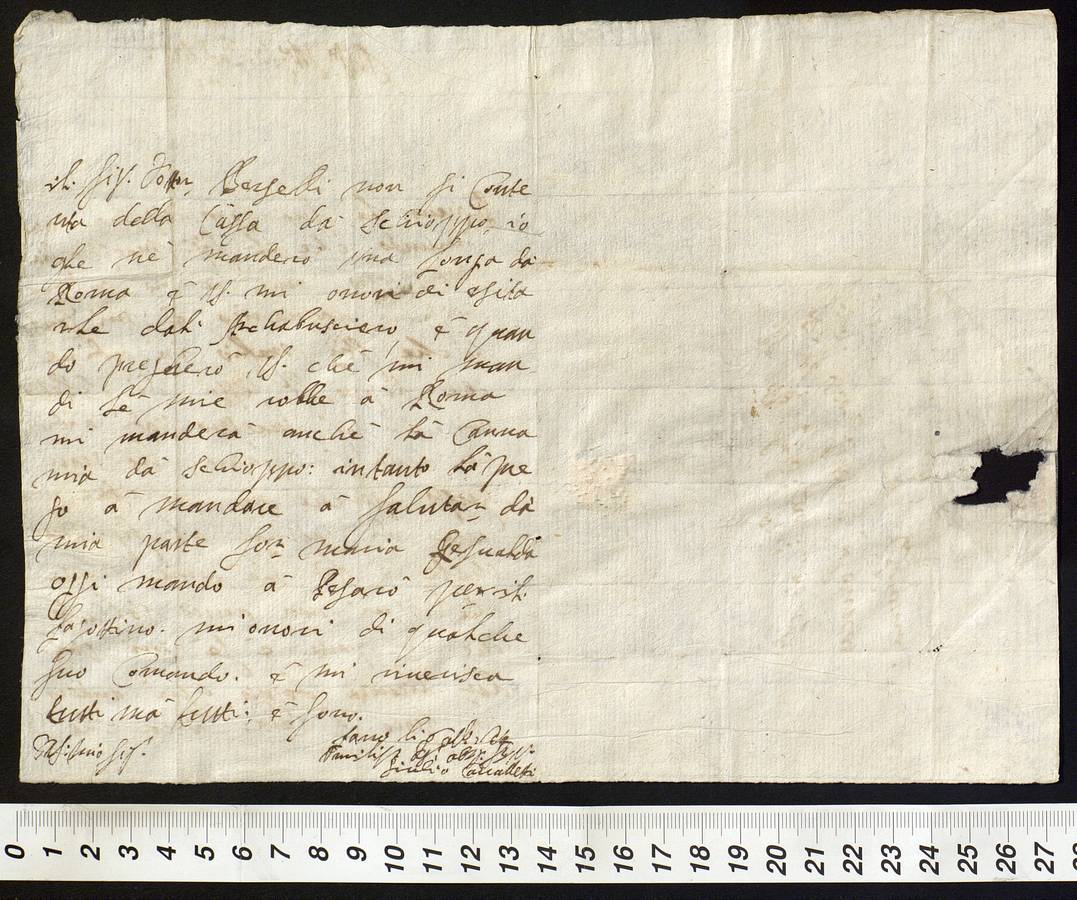 il Sig. Dottor Berselli non si Conte
nta della Cassa da Schioppo io
ghe ne manderò una longa da
Roma è VS. mi onori di
dal Archabusciero, è quan
do pregherò VS. che mi man
di le mie robbe à Roma
mi manderà anche la Canna
mia da Schioppo: intanto la pre
go à mandare à Salutar da
mia parte Sor. maria Gesualda
oggi mando à Pesaro per il
fagottino. mi onori di qualche
suo Comando. è mi riverisca
tutti mà tutti; è sono.
Sig.
Giulio Cavalletti
0 1 2 3 4 5 6 7 8 9 10 11 12 13 14 15 16 17 18 19 20 21 22 23 24 25 26 27